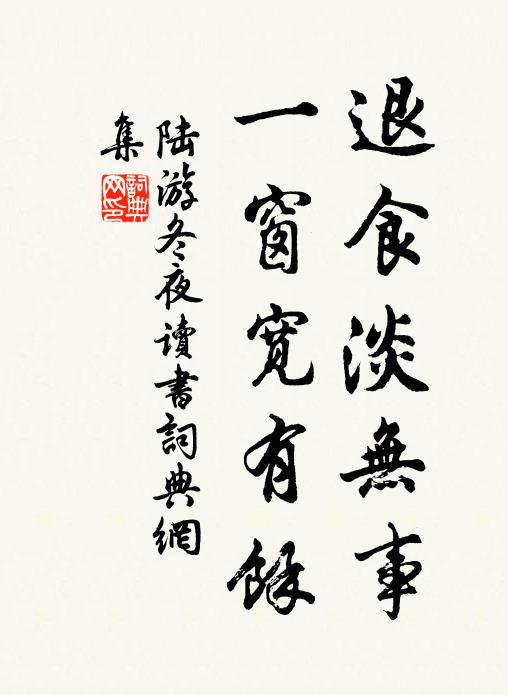 退食淡無事
一窗寬有餘
陸游冬夜讀書詞典網
集
詞典
网印